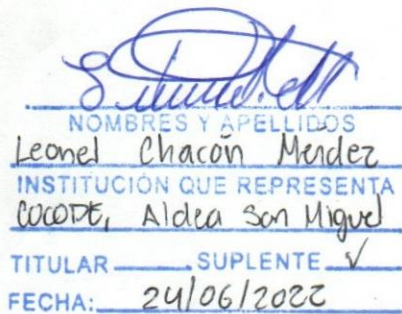 NOMBRES Y APELLIDOS
Leonel Chacón Mendez
INSTITUCIÓN QUE REPRESENTA
COCODE, Aldea San Miguel
TITULAR ______ SUPLENTE √
FECHA: 24/06/2022